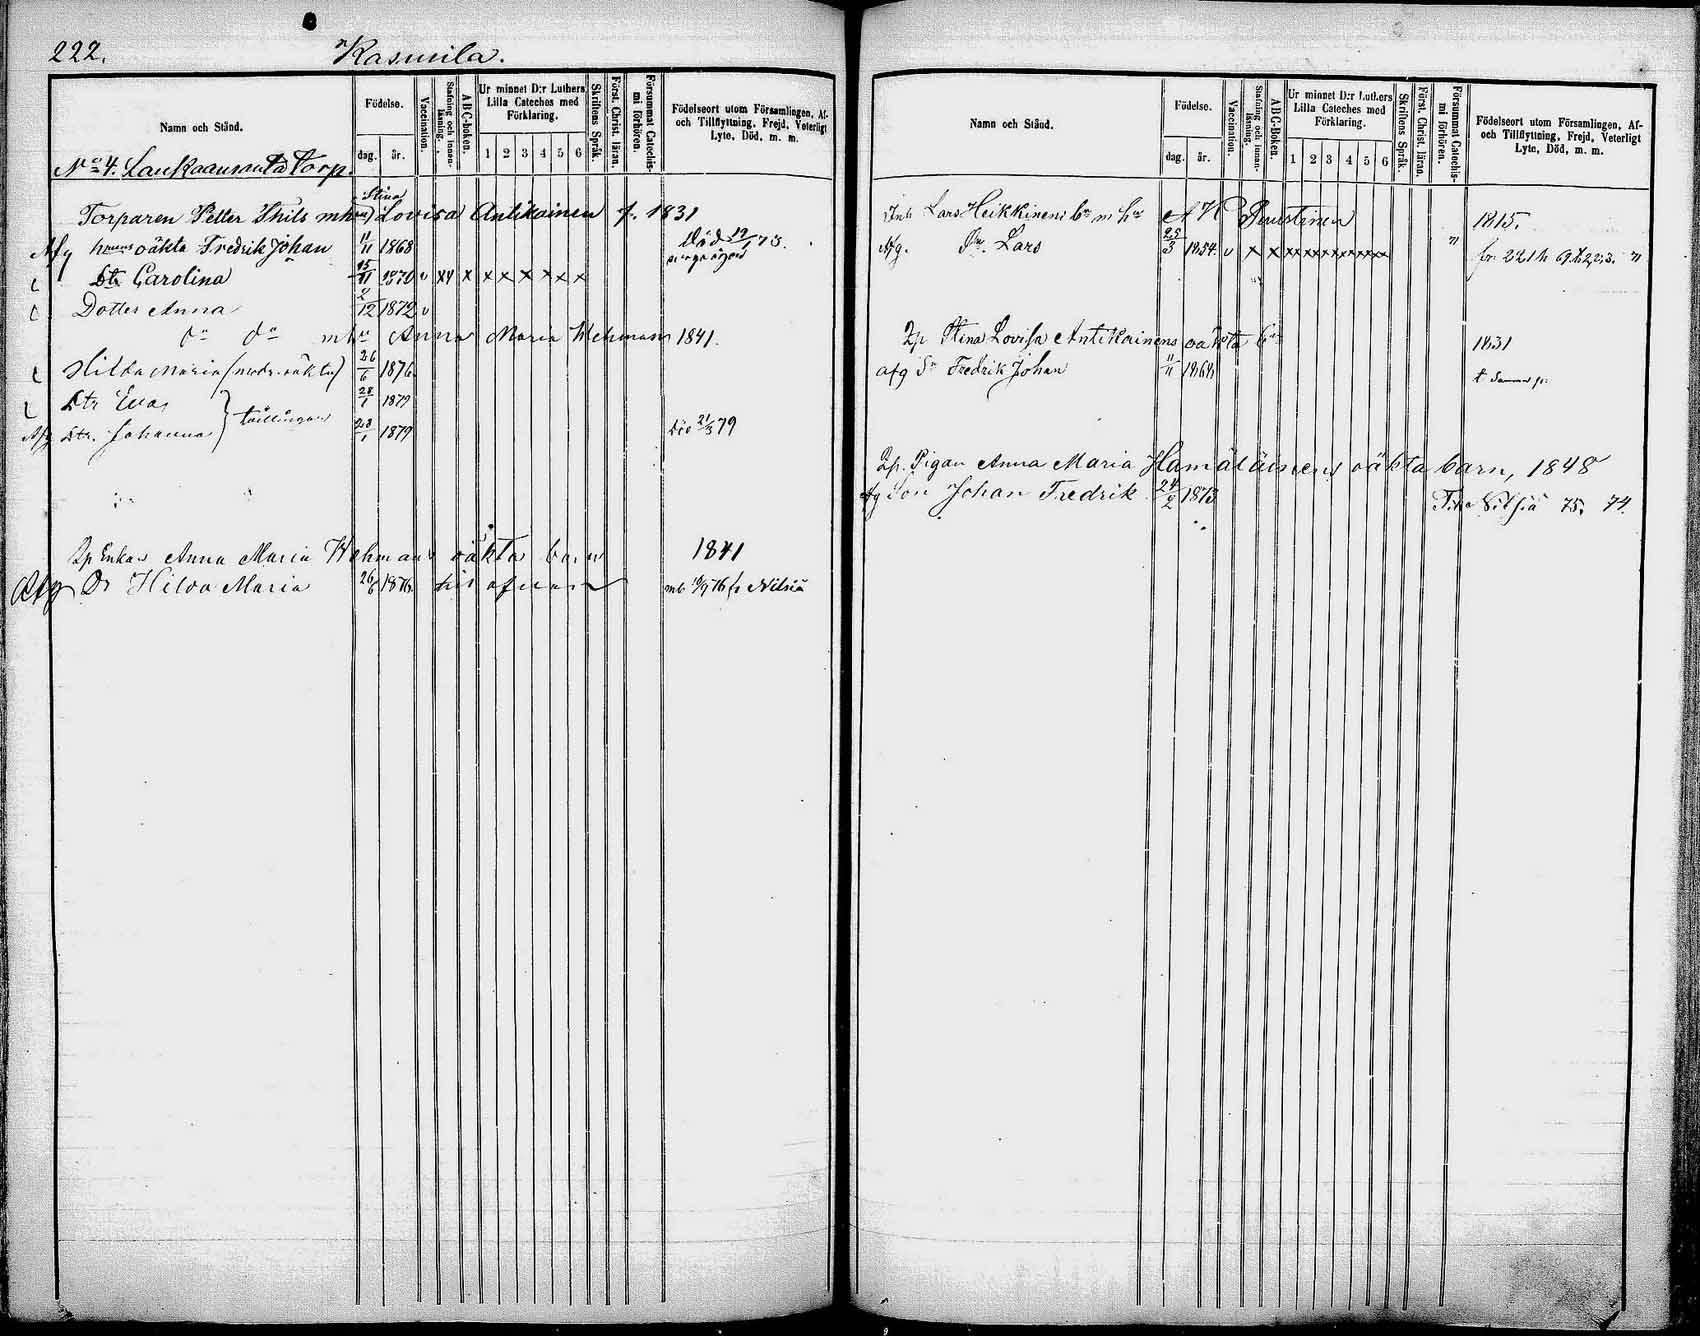 222. Kasurila.
Namn och Stånd.
Födelse.
dag. år.
Vaccination.
Stafning och innan-läsning.
ABC-boken.
Ur minnet D:r Luthers Lilla Cateches med Förklaring.
1 2 3 4 5 6
Skriftens Språk.
Först. Christ. läran.
Försummat Catechis-mi förhören.
Födelseort utom Församlingen, Af- och Tillflyttning, Frejd, Veterligt Lyte, Död, m. m.
No 4. Torp.
Stina
Torparen Petter Thils mhu Lovisa Antikainen f. 1831
Afg hennes oäkta Fredrik Johan 11/11 1868 Död 19/1 73.
Dtr Carolina 15/11 1870 v x x x x x x x x x
Dotter Anna 2/12 1872 v
do do mhu Anna Maria Wehman 1841.
Hilda Maria (mods oäkta) 26/6 1876
Dtr Eva 28/1 1879
tvillingar
Afg Dtr. Johanna 28/1 1879 Död 21/3 79
Lp Enkan Anna Maria Wehmans oäkta barn 1841
Afg Dr Hilda Maria 26/6 1876 mb 10/9 76 fr Nilsiä
Namn och Stånd.
Födelse.
dag. år.
Vaccination.
Stafning och innan-läsning.
ABC-Boken.
Ur minnet D:r Luthers Lilla Cateches med Förklaring.
1 2 3 4 5 6
Skriftens Språk.
Först. Christ. läran.
Försummat Catechis-mi förhören.
Födelseort utom Församlingen, Af- och Tillflyttning, Frejd, Veterligt Lyte, Död, m. m.
Inh Lars Heikkinens bn m hu A K Puustinen 1815.
Afg. Lars 25/3 1854. v x x x x x x x x x x x fr. 221
Lp Stina Lovisa Antikainens oäkta bn 1831
afg Sn Fredrik Johan 11/11 1868
Lp. Pigan Anna Maria Hämäläinens oäkta barn, 1848
Afg Son Johan Fredrik 24/2 1873 Nilsiä 75. 74.